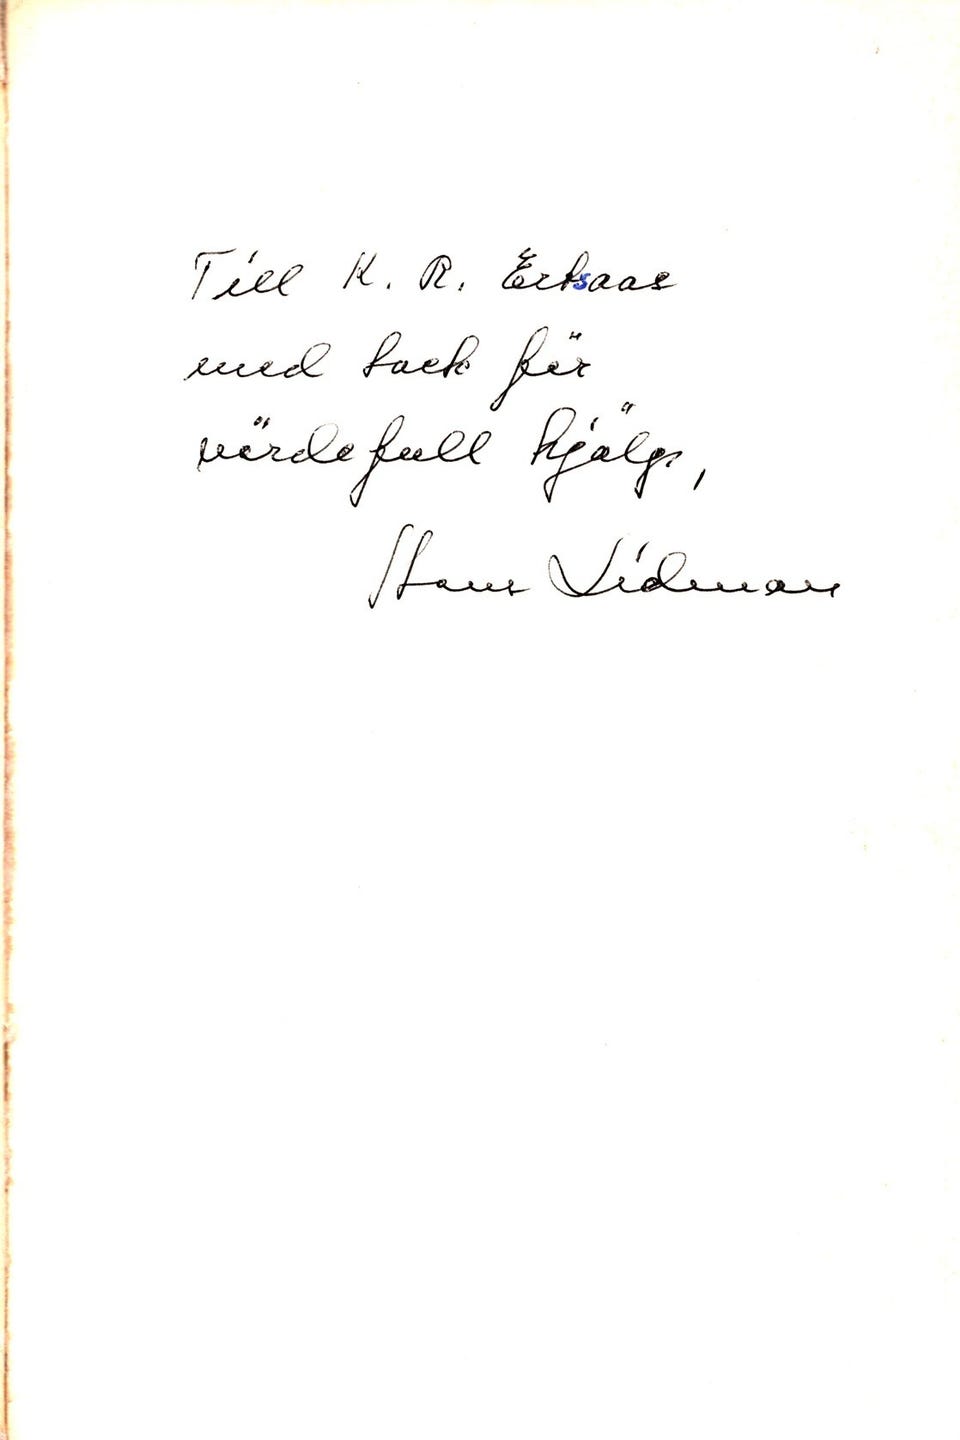 Till K. R. Erksaas
med tack för
värdefull hjälp,
Hans Lidman